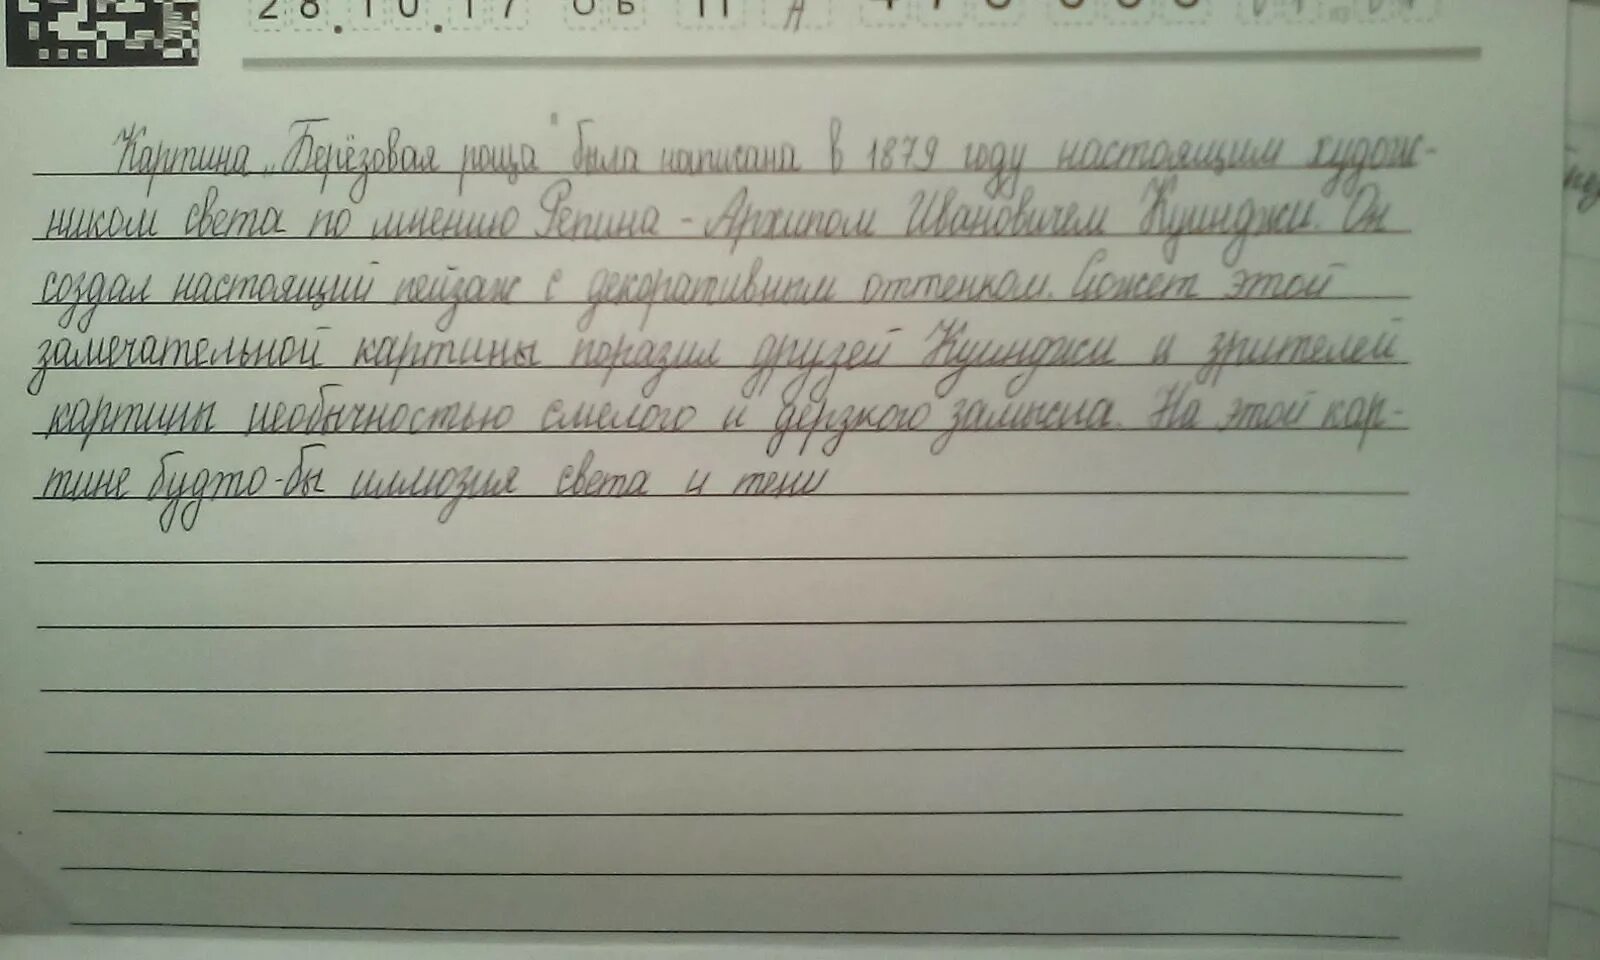 28.10.17 06 11
Картина „Берёзовая роща" была написана в 1879 году настоящим худож-
ником света по мнению Репина - Архипом Ивановичем Куинджи. Он
создал настоящий пейзаж с декоративным оттенком. Сюжет этой
замечательной картины поразил друзей Куинджи и зрителей
картины необычностью смелого и дерзкого замысла. На этой кар-
тине будто-бы иллюзия света и тени